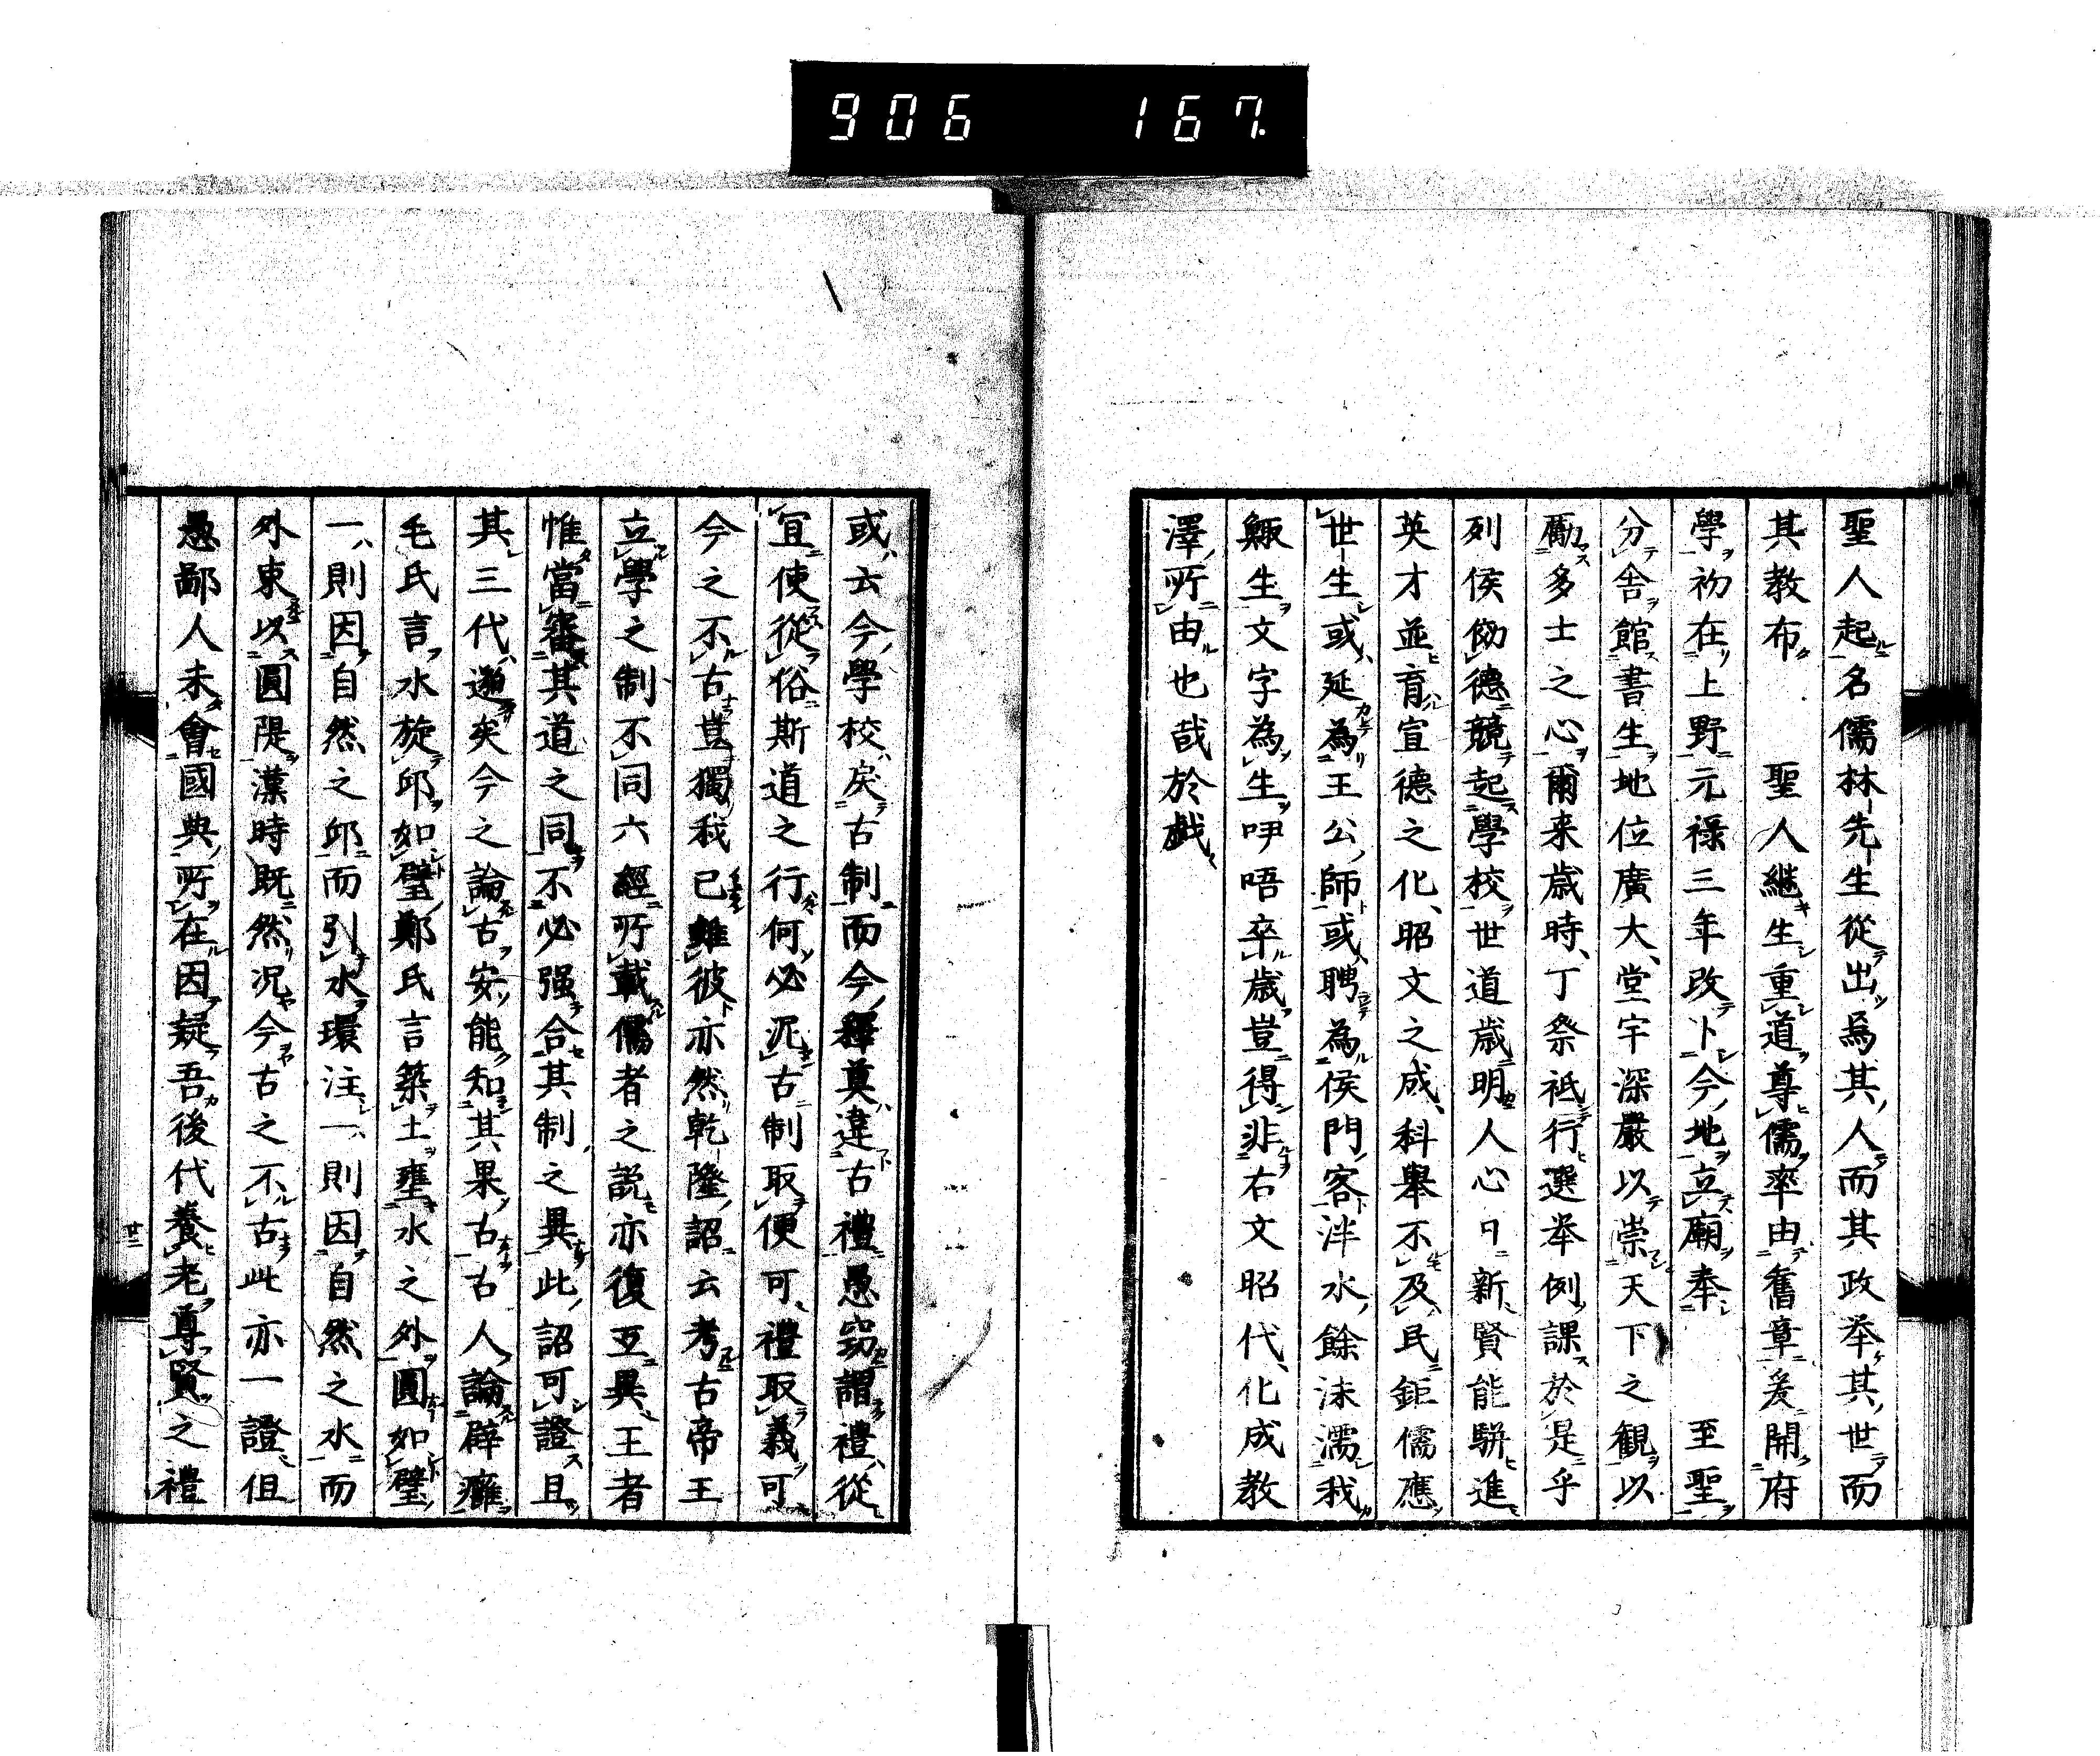 906 167.
聖人起名儒林先生從出焉其人而其政举其世而
其教布 聖人継生重道尊儒率由舊章爰開府
學初在上野元祿三年改卜今地立廟奉 至聖
分舎館書生地位廣大堂宇深嚴以崇天下之観以
勵多士之心爾来歳時丁祭祗行選举例課於是乎
列侯効德競起學校世道歳明人心日新賢能駢進
英才並育宣德之化昭文之成科舉不及民鉅儒應
世生或延為王公師或聘為侯門客泮水餘沫濡我
鯫生文字為生吚唔卒歳豈得非右文昭代化成教
澤所由也哉於戯
或云今學校戾古制而今釋奠違古禮愚窃謂禮從
宜使從俗斯道之行何必泥古制取便可禮取義可
今之不古豈獨我已雖彼亦然乾隆詔云考古帝王
立學之制不同六經所載儒者之説亦復互異王者
惟當審其道之同不必强合其制之異此詔可證且
其三代邈矣今之論古安能知其果古古人論辟癰
毛氏言水旋邱如璧鄭氏言築土壅水之外圓如璧
一則因自然之邱而引水環注一則因自然之水而
外東以圓隄漢時既然况今古之不古此亦一證伹
愚鄙人未會國典所在因疑吾後代養老尊賢之禮
廿二